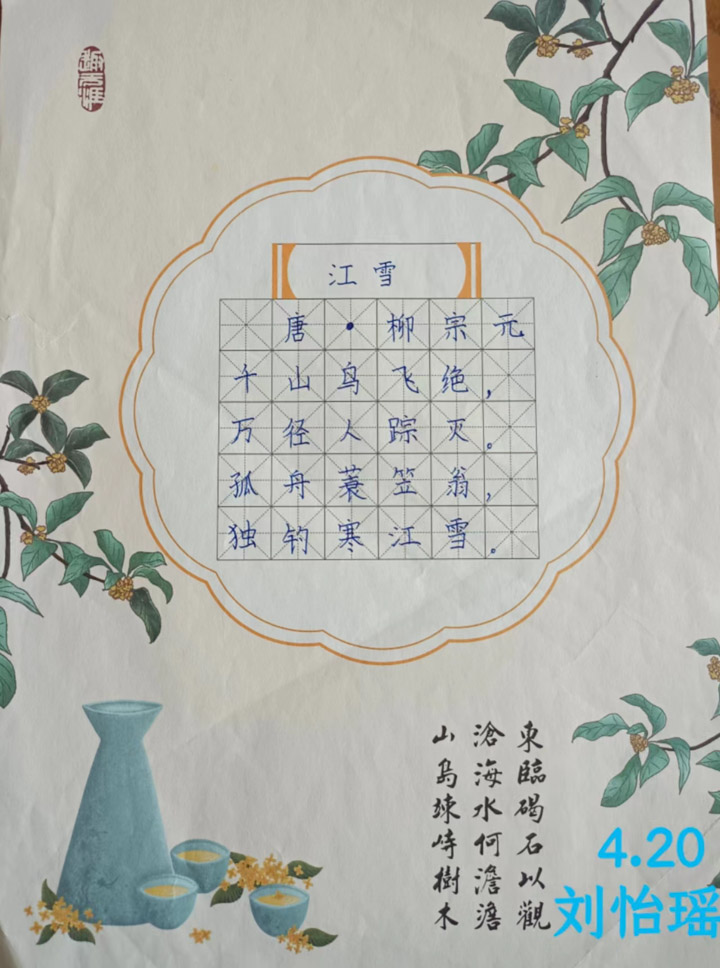 江雪
唐·柳宗元
千山鸟飞绝，
万径人踪灭。
孤舟蓑笠翁，
独钓寒江雪。
東臨碣石以觀
滄海水何澹澹
山島竦峙樹木
4.20
刘怡瑶